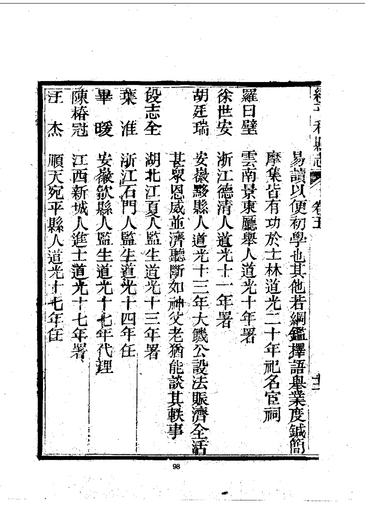 易讀以便初學也其他若綱鑑擇語舉業度鍼簡
摩集皆有功於士林道光二十年祀名宦祠
羅曰壁 雲南景東廳舉人道光十年署
徐世安 浙江德清人道光十一年署
胡廷瑞 安徽黟縣人道光十三年大饑公設法賑濟全活
甚眾恩威並濟聽斷如神父老猶能談其軼事
段志全 湖北江夏人監生道光十三年署
葉淮 浙江石門人監生道光十四年任
畢暖 安徽歙縣人監生道光十七年代理
陳椿冠 江西新城人進士道光十七年署
汪杰 順天宛平縣人道光十七年任
98